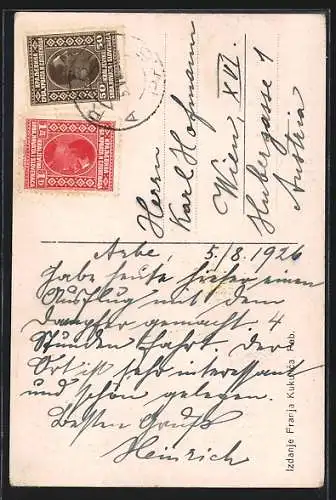 Herrn
Karl Hofmann
Wien, XVI.
Hubergasse 1
Austria
Arbe, 5./8. 1926
Habe heute hieher einen
Ausflug mit dem
Dampfer gemacht. 4
Stunden Fahrt. Der
Ort ist sehr interessant
und schön gelegen.
Besten Gruß
Heinrich
Izdanje Franja Kukurića Rab.
50 50
1 Д 1 D